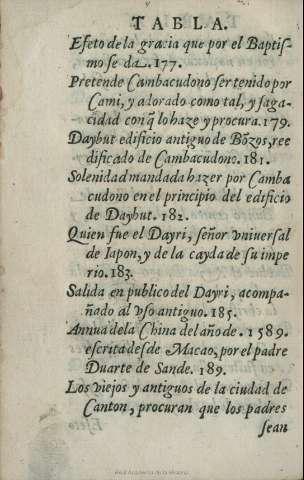 TABLA.
Efeto de la gracia que por el Baptis-
mo se da. 177.
Pretende Cambacudono ser tenido por
Cami, y adorado como tal, y saga-
cidad con q̃ lo haze y procura. 179.
Daybut edificio antiguo de Bõzos, ree
dificado de Cambacudono. 181.
Solenidad mandada hazer por Camba
cudono en el principio del edificio
de Daybut. 182.
Quien fue el Dayri, señor vniuersal
de Iapon, y de la cayda de su impe
rio. 183.
Salida en publico del Dayri, acompa-
ñado al vso antiguo. 185.
Annua de la China del año de. 1589.
escrita desde Macao, por el padre
Duarte de Sande. 189.
Los viejos y antiguos de la ciudad de
Canton, procuran que los padres
sean
Real Academia de la Historia